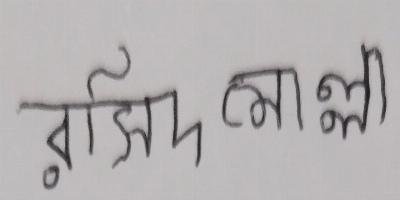 রসিদ মোল্লা